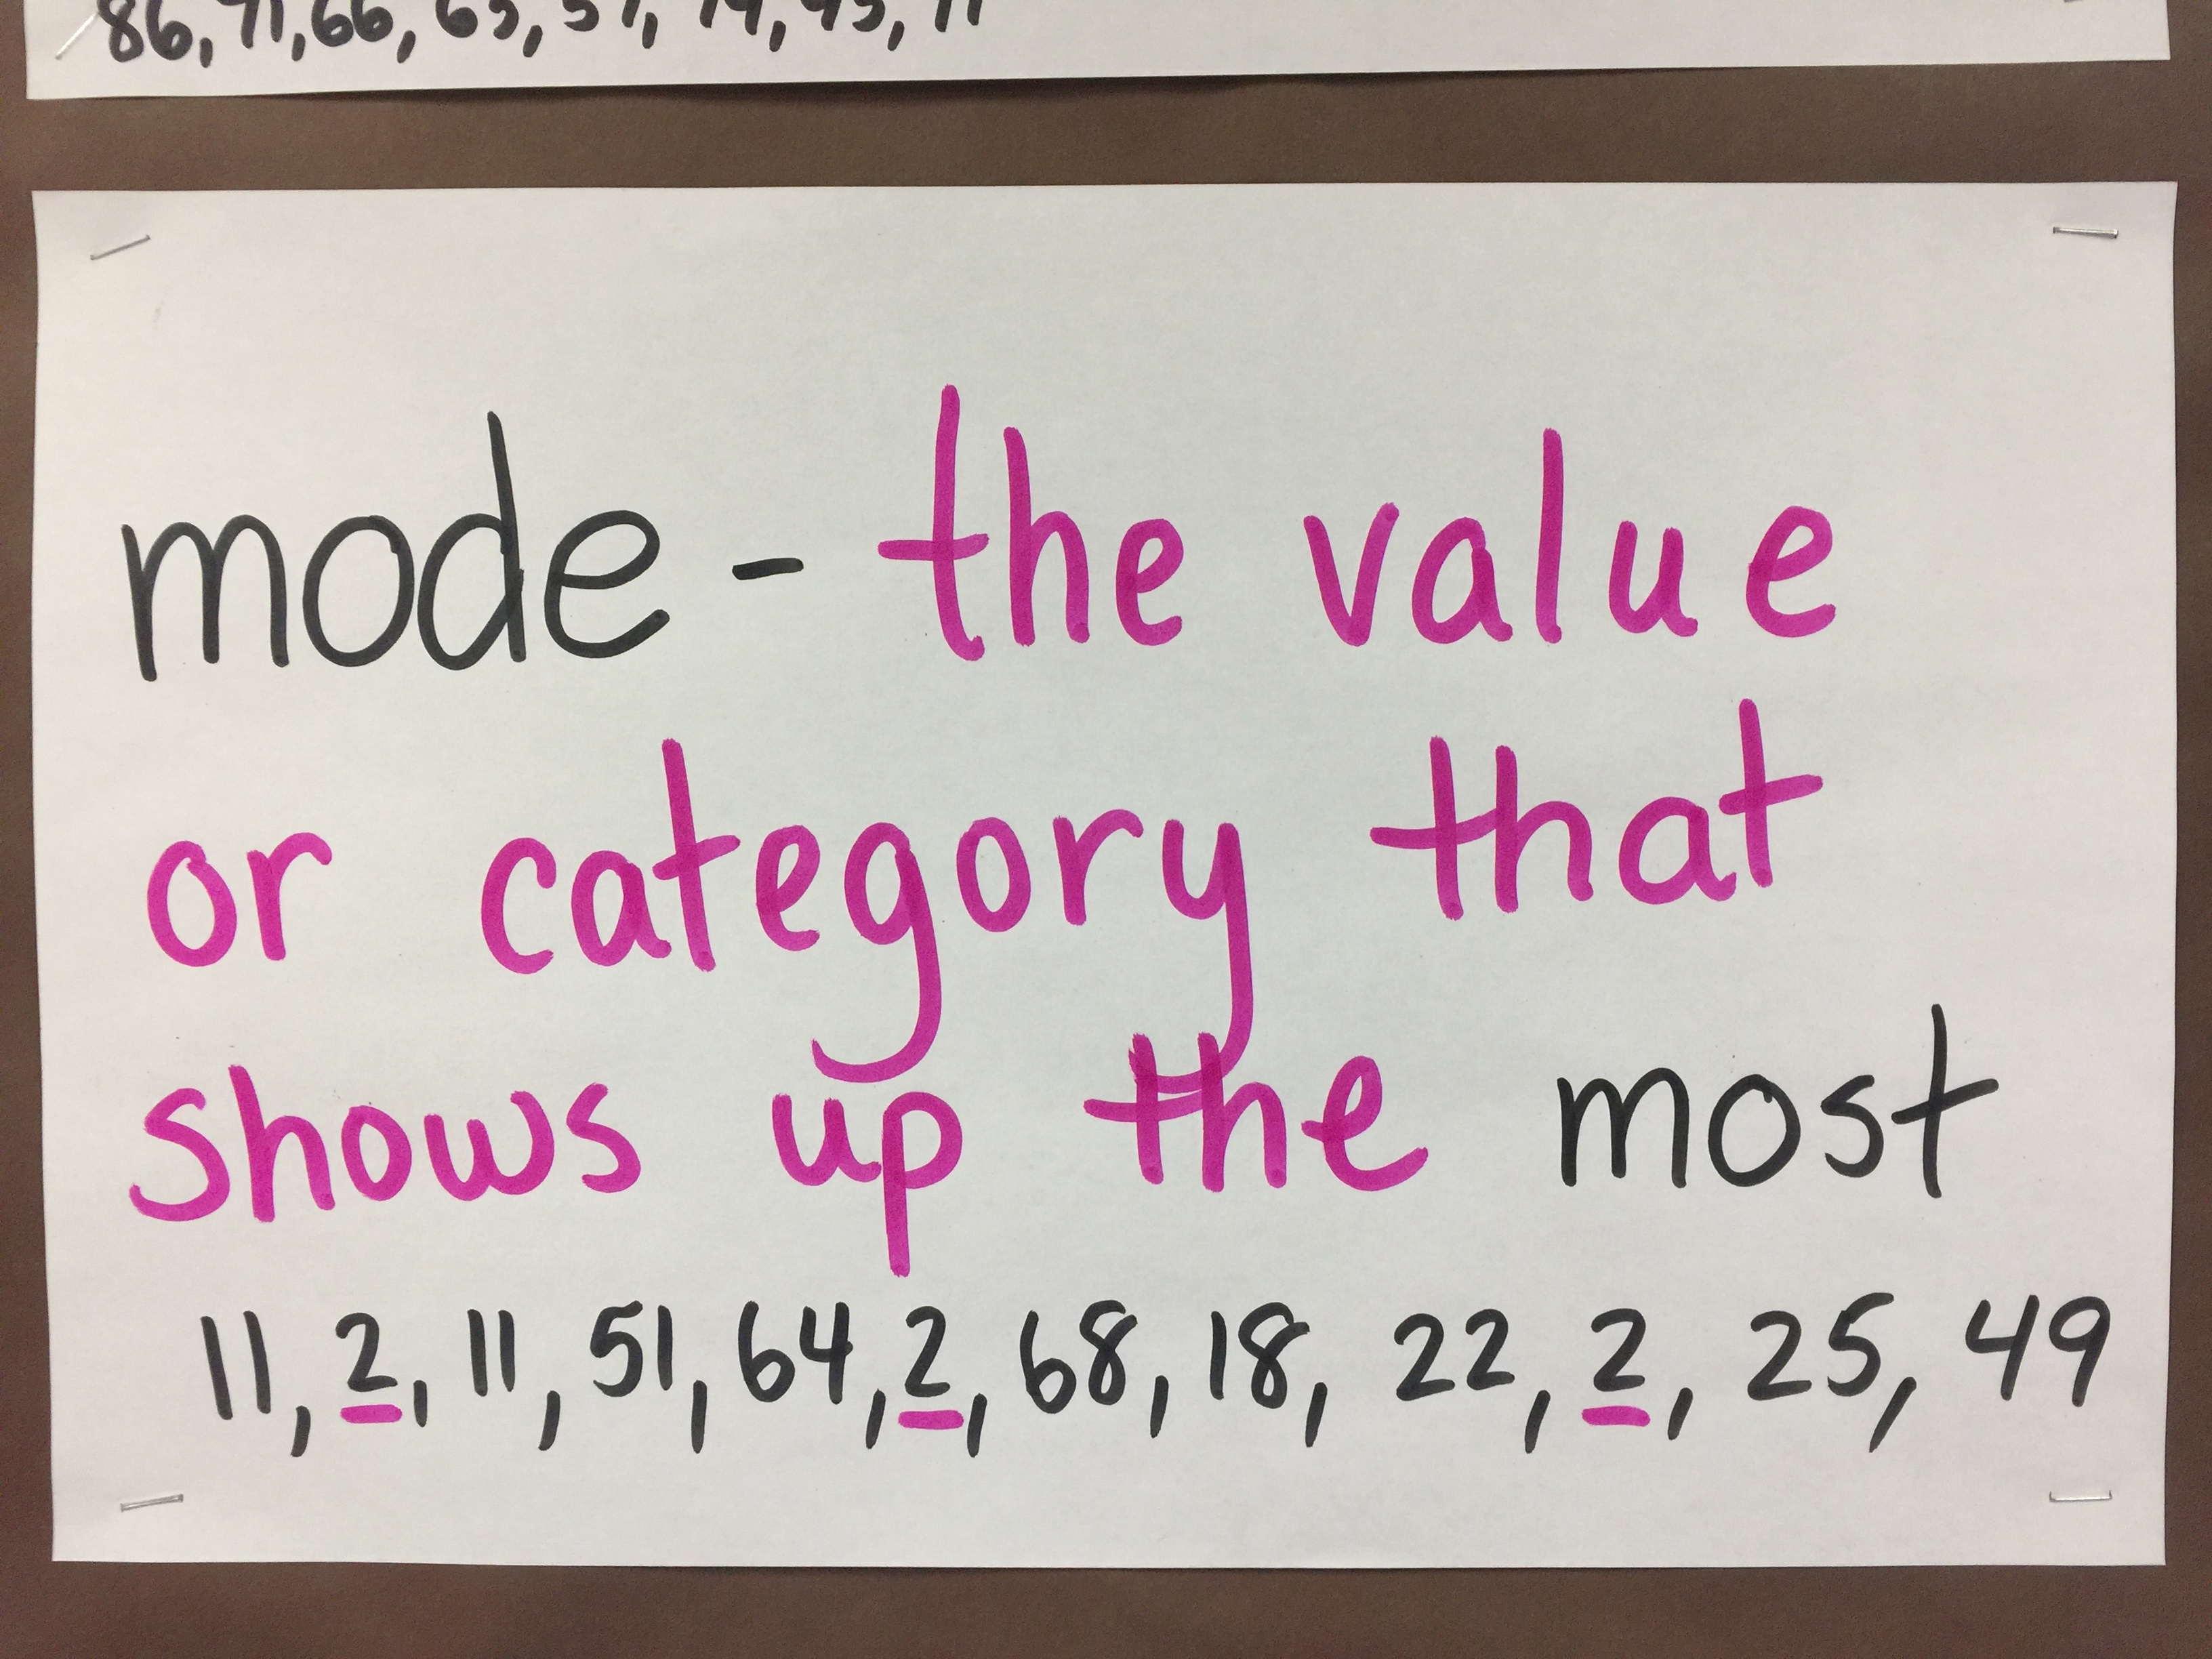 86, 71, 66, 63, 57,
mode - the value
or category that
shows up the most
11, 2, 11, 51, 64, 2, 68, 18, 22, 2, 25, 49